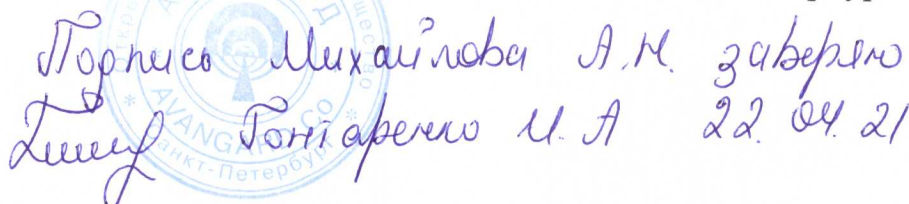 Подпись Михайлова А.Н. заверяю
Гонтаренко И.А 22.04.21
AVANGARD Co
Санкт-Петербург